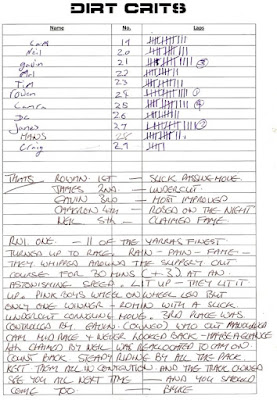 DIRT CRITS
Name No. Laps
Cam 19
Neil 20
Gavin 21
22
Tim 23
Rowan 24
25
26
James 27
HANS 28
Craig 29
THATS - ROWAN 1ST - SLICK PASSING MOVE.
JAMES 2ND - UNDERCUT
GAVIN 3RD - MOST IMPROVED
CAMERON 4TH - ROBBED ON THE NIGHT
NEIL 5TH - CLAIMED FAME.
RNL ONE. - 11 OF THE YARRAS FINEST
TURNED UP TO RACE. RAIN - PAIN - FAME -
THEY WHIPPED AROUND THE SLIPPERY CRIT
COURSE FOR 30 MINS (+ 3) AT AN
ASTONISHING SPEED. LIT UP - THEY LIT IT
UP. PINK BOYS WHEEL ON WHEEL LED BUT
ONLY ONE WINNER - ROWAN WITH A SLICK
UNDERCUT CORNERING MOVE. 3RD PLACE WAS
CONTROLLED BY GAVIN WHO OUT
CAM MID RACE & NEVER LOOKED BACK -
4TH CLAIMED BY NEIL WAS REALLOCATED TO CAM ON
COUNT BACK. STEADY RIDING BY ALL THE PACK.
KEPT THEM ALL IN CONTENTION AND THE TRACK OWNED
SEE YOU ALL NEXT TIME - AND YOU SHOULD
COME TOO -